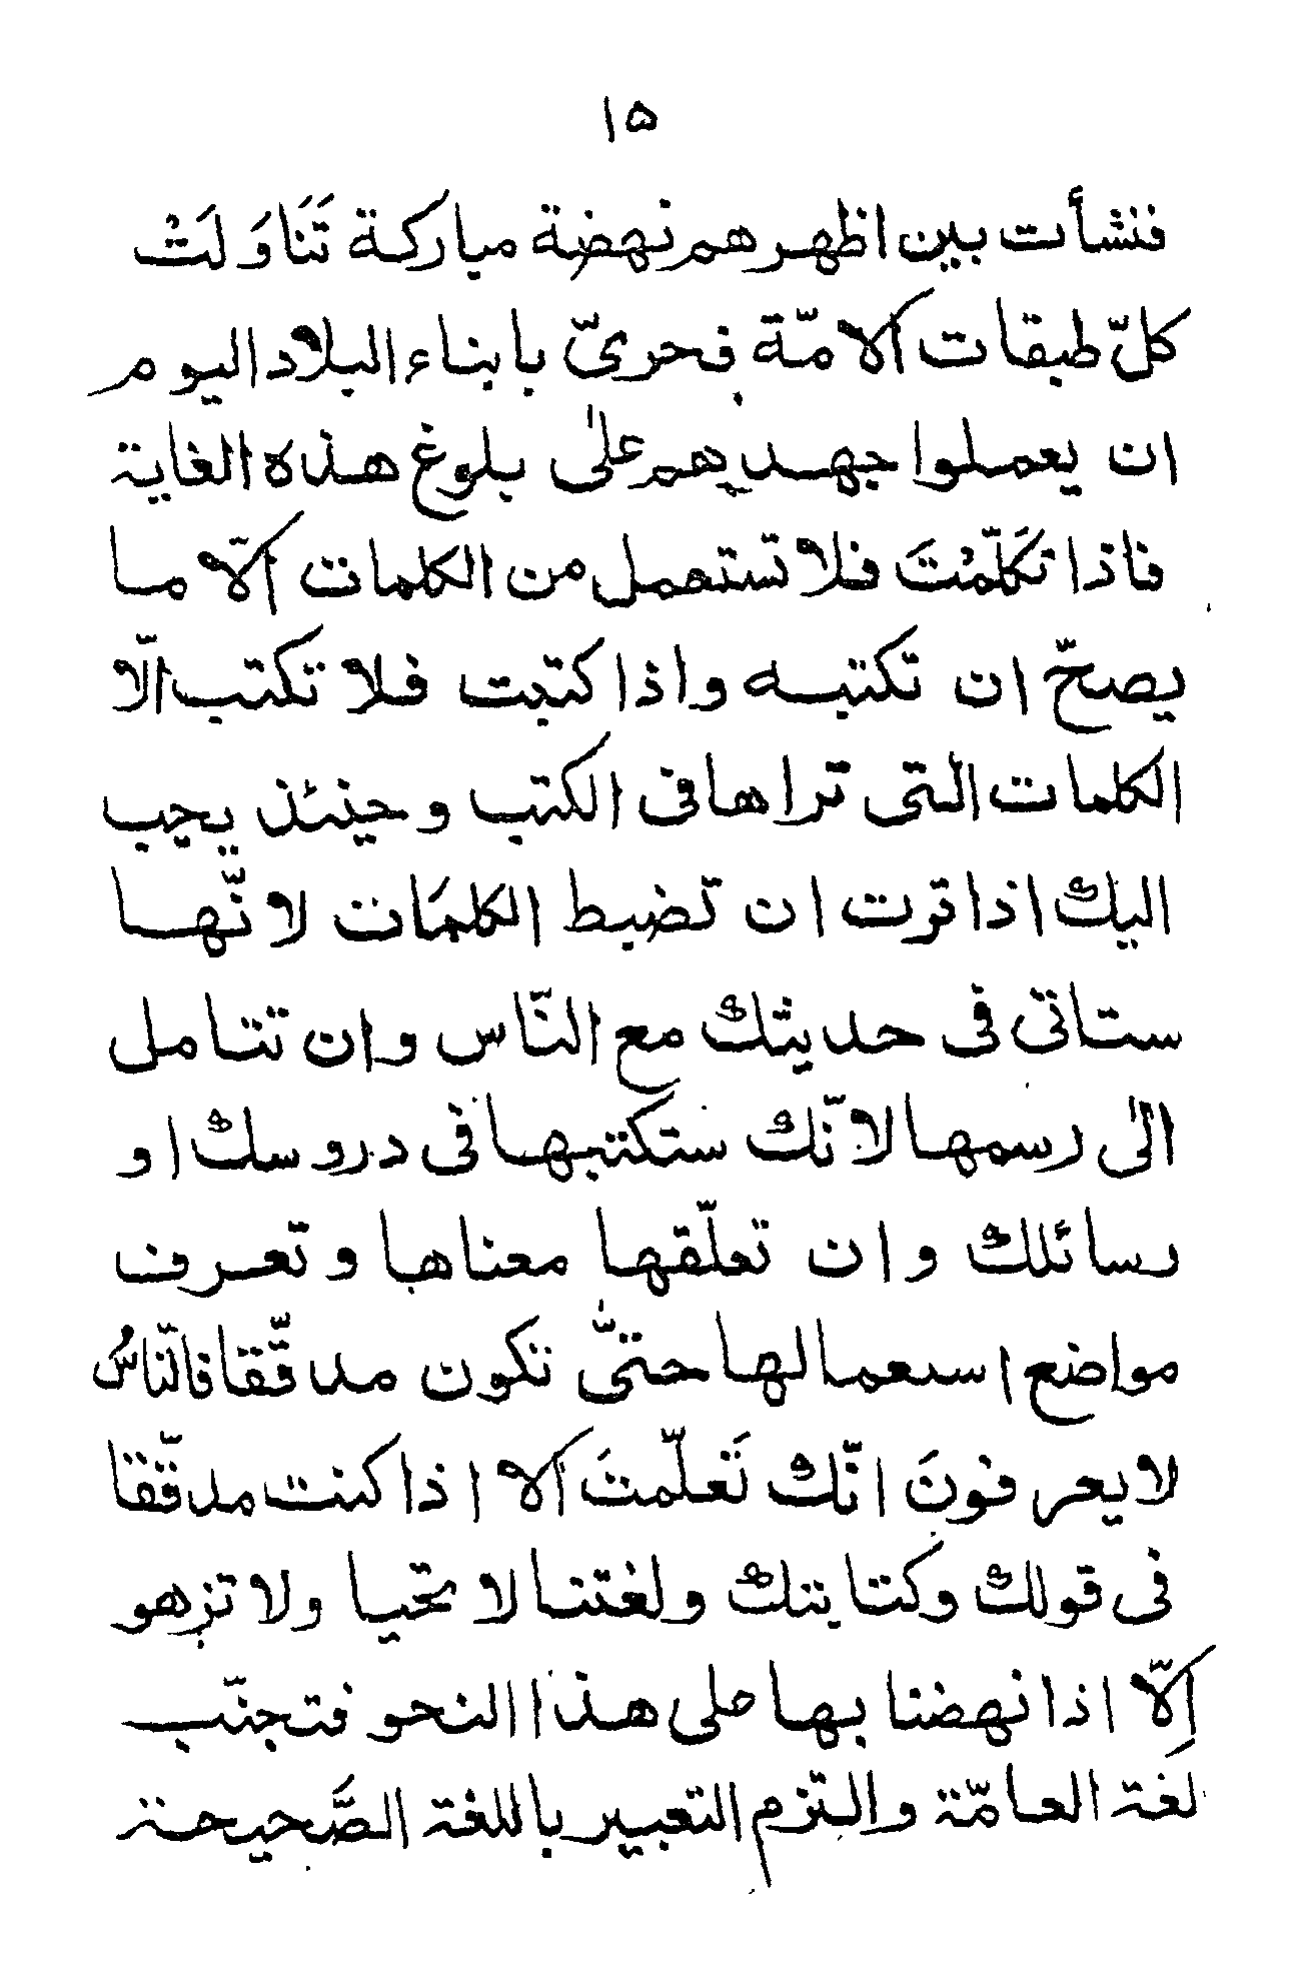 ١٥
فنشأت بين اظهرهم نهضة مباركة تَنَاوَلَتْ
كلّ طبقات الامّة فحريّ بابناء البلاد اليوم
ان يعملوا جهدهم على بلوغ هذه الغاية
فاذا تكَلّمْتَ فلا تستعمل من الكلمات الّا ما
يصحّ ان تكتبه واذا كتبت فلا تكتب الّا
الكلمات التى تراها فى الكتب وحينئذ يجب
اليك اذا قرت ان تضبط الكلمَات لانّها
ستاتى فى حديثك مع النّاس وان تتامل
الى رسمها لانّك ستكتبها فى دروسك او
رسائلك وان تعلّقها معناها وتعرف
مواضع اسعمالها حتّى تكون مدقّقا فالنّاسُ
لا يعرفونَ انّك تَعلّمتَ الا اذا كنت مدقّقا
فى قولك وكتابتك ولغتنا لا تحيا ولا تزهو
اِلّا اذا نهضنا بها على هذا النحو فتجنّب
لغة العامّة والتزم التعبير باللغة الصَّحيحة